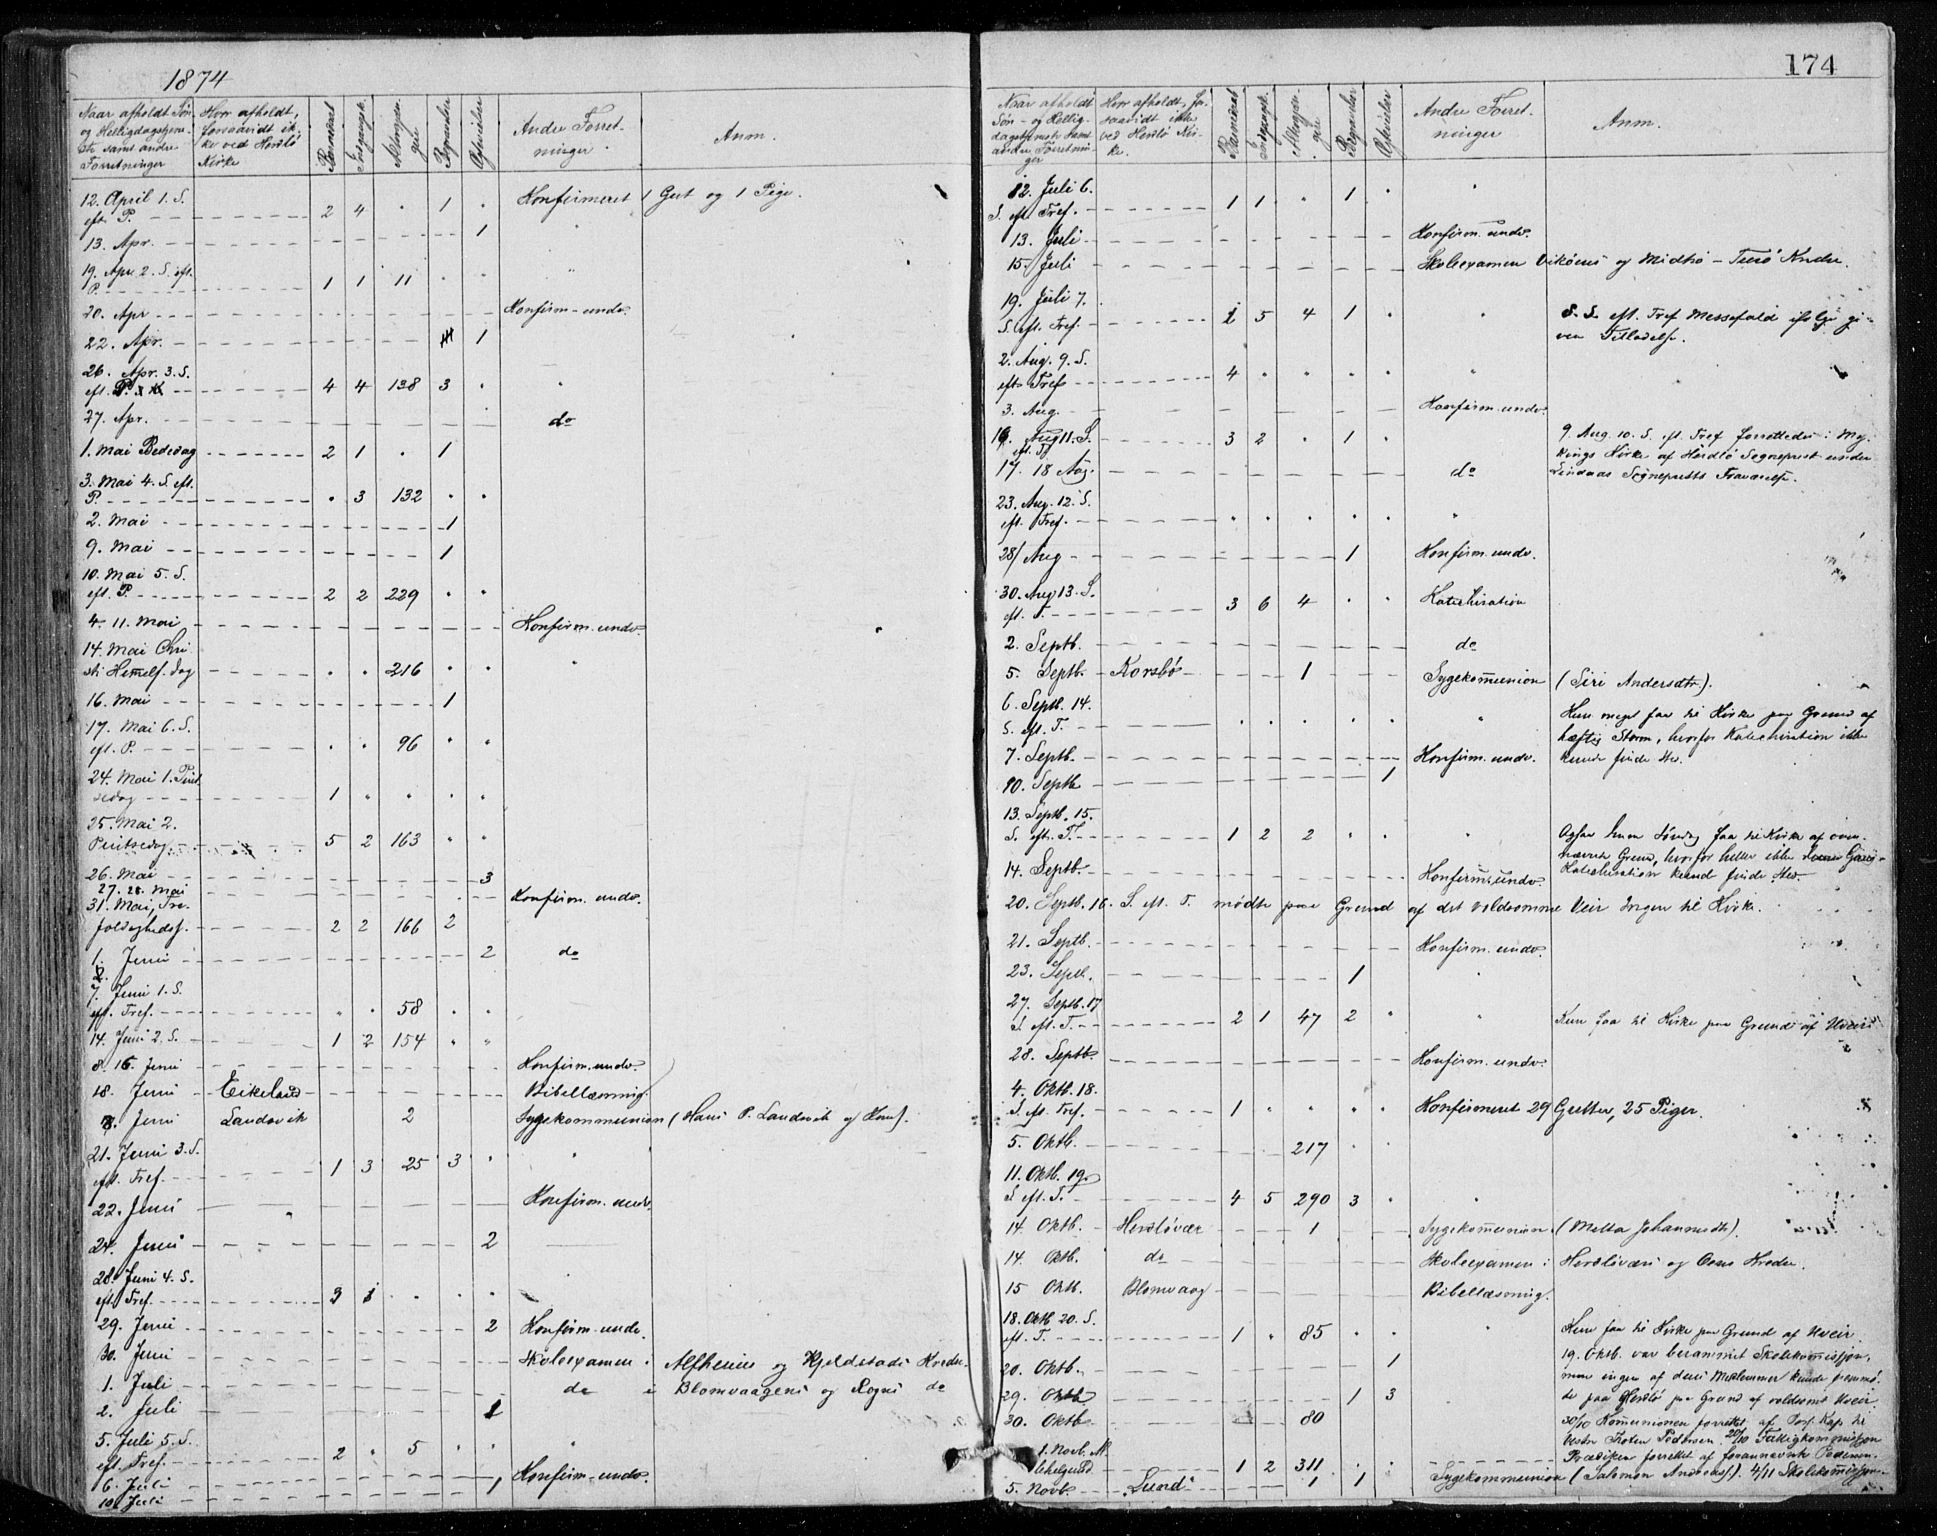 1874
Naar afholdt Søn
og Helligdagstjene
ste samt andre
Forretninger
Hvor afholdt,
forsaavidt ik,
ke ved Herdlø
Kirke
Barnedaab
Indgangsk.
Altergjæn
gere
Begravelser
Ægtevielser
Andre Forret-
ninger.
Anm.
12. April 1. S.
eft. P. 2 4 " 1 " Konfirmeret 1 Gut og 1 Pige.
13. Apr. 1 "
19. Apr. 2. S. eft.
P. 1 1 11 " " "
20. Apr Konfirm-undv.
22. Apr. 1
26. Apr. 3. S.
eft. P. 4 4 138 3 " "
27. Apr. do
1. Mai Bededag 2 1 " 1
3. Mai 4. S. eft.
P. " 3 132 " "
2. Mai 1
9. Mai 1
10. Mai 5. S.
eft. P. 2 2 229 " "
4. 11. Mai Konfirm. undv.
14. Mai Chri
sti Hemelf. dag " " 216 " " "
16. Mai 1
17. Mai 6. S.
eft. P. " " 96 " "
24. Mai 1. Pint
sedag 1 " " " "
25. Mai 2.
Pintsedag 5 2 163 " "
26. Mai 3
27. 28. Mai Konfirm. undv.
31. Mai, Tre-
foldighedsf. 2 2 166 2
1. Juni 2 do
7. Juni 1. S.
eft. Tref. " " 58 " "
14. Juni 2. S. 1 2 154 " "
8. 15. Juni Konfirm. undv.
18. Juni Eikeland Bibellæsning.
Juni Landsvik 2 Sygekommunion (Hans P. Landsvik og Kone).
21. Juni 3. S.
eft. Tref. 1 3 25 3 " "
22. Juni Konfirm. undv.
24. Juni 2
28. Juni 4. S.
eft. Tref. 3 1 " " "
29. Juni 2 Konfirm-undv.
30. Juni Skoleexamen i Alfheims og Kjeldstads Kredse
1. Juli do i Blomvaagens og Rognes do
2. Juli 1
5. Juli 5. S.
eft. Tref. 2 " 5 " " "
6. Juli 1 Konfirm-undv.
10. Juli
174
Naar afholdt
Søn- og Hellig-
dagstjeneste samt
andre Forretnin-
ger
Hvor afholdt, for-
saavidt ikke
ved Herdlø Kir-
ke.
Barnedaab
Indgangsk.
Altergjæn
gere
Begravelser
Ægtevielser
Andre Forret-
ninger
Anm.
12. Juli 6.
S. eft. Tref. 1 1 " 1 " "
13. Juli Konfirm. undv.
15. Juli Skoleexamen Vikøens og Midtø - Turø Kredse.
19. Juli 7.
S. eft. Tref. 1 5 4 1 " " 8. S. eft. Tref Messefald ifølge gi-
ven Tilladelse.
2. Aug. 9. S.
eft. Tref 4 " " " " "
3. Aug. Konfirm. undv.
16. Aug 11. S.
eft. Tf. 3 2 " 1 " 9. Aug. 10. S. eft. Tref forrettedes i My-
kings Kirke af Herdlø Sognepræst under
Lindaas Sognepræsts Fraværelse.
17. 18 Aug. do
23. Aug. 12. S.
eft. Tref. " " " " " "
28/ Aug 1 Konfirm. undv.
30. Aug 13. S.
eft. T. 3 6 4 " " Katekisation
2. Septb. do
5. Septb. Korsbø 1 Sygekommunion (Siri Andersdtr).
6. Septb. 14.
S. eft. T. " " " " " " Kun meget faa til Kirke paa Grund af
hæftig Storm, hvorfor Katechisation ikke
kunde finde Sted.
7. Septb. Konfirm. undv.
10. Septb 1
13. Septb. 15.
S. eft. T. 1 2 2 " " " Ogsaa denne Søndag faa til Kirke af oven-
nævnte Grund, hvorfor heller ikke denne Gang
Katechisation kunde finde Sted.
14. Septb. Konfirm. undv.
20. Septb. 16. S. eft. T. mødte paa Grund af det voldsomme Veir Ingen til Kirke.
21. Septb. Konfirm. undv.
23. Septb. 1 "
27. Septb. 17
S. eft. T. 2 1 47 2 " " Kun faa til Kirke paa Grund af Uveir
28. Septb. Konfirm. undv.
4. Oktb. 18.
S. eft. Tref. 1 " " " " Konfirmeret 29 Gutter, 25 Piger.
5. Oktb. 217
11. Oktb. 19.
S. eft. T. 4 5 290 3 " "
14. Oktb. Herdløvær 1 Sygekommunion (Metta Johannesdtr).
14. Oktb. do Skoleexamen i Herdløværs og Oens Kredse.
15 Oktb. Blomvaag Bibellæsning.
18. Oktb 20. S.
eft. T. 1 " 85 " " " Kun faa til Kirke paa Grund af Uveir
19. Oktb. var berammet Skolekommission,
men ingen af dens Medlemmer kunde fremmø-
de paa Herdlø paa Grund af voldsomt Uveir
20. Oktb. 1
29. Oktb 1 3
30. Oktb. 80
30/10 Kommunionen forrettet af Pers. Kap. til
Vestre Toten Pedersen. 29/10 Fattigkommission
1. Novb. Al
lehelgensd 1 2 311 " " Prædiken forrettet af forannævnte Pedersen.
5. Novb. Lund 1 1 Sygekommunion (Salomon Andreas). 4/11 Skolekommission.